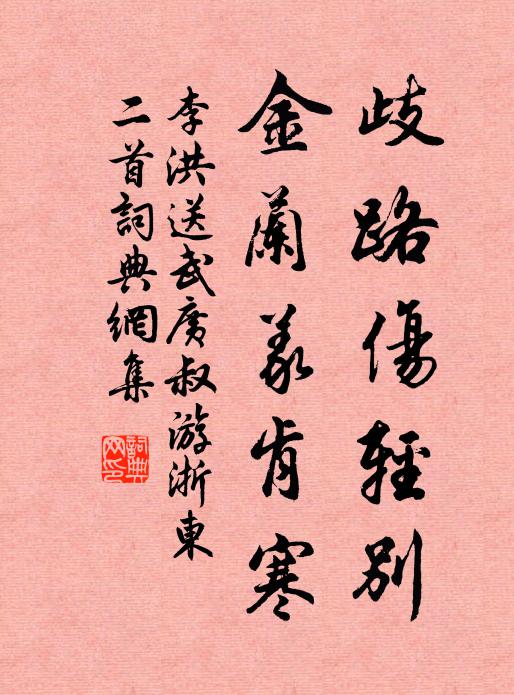 歧路傷輕別
金蘭義肯寒
李洪送武廣叔游浙東
二首詞典網集
詞典
网印